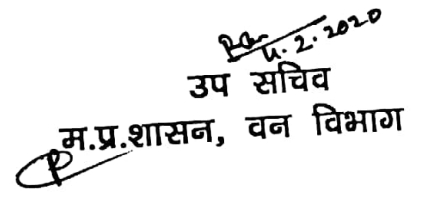 4.2.2020
उप सचिव
म.प्र.शासन, वन विभाग